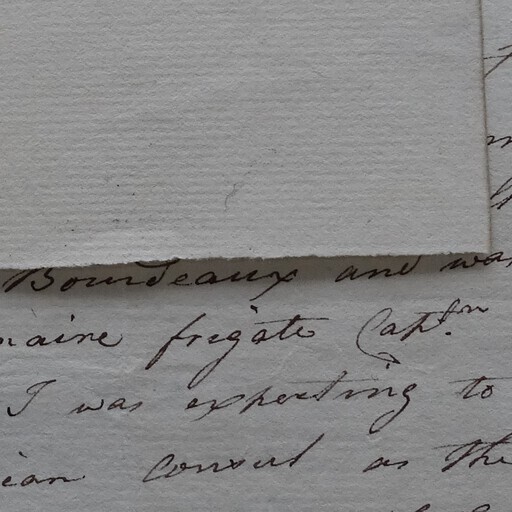 Bourdeaux and was
naire frigate Captn
I was expecting to
ican consul as the